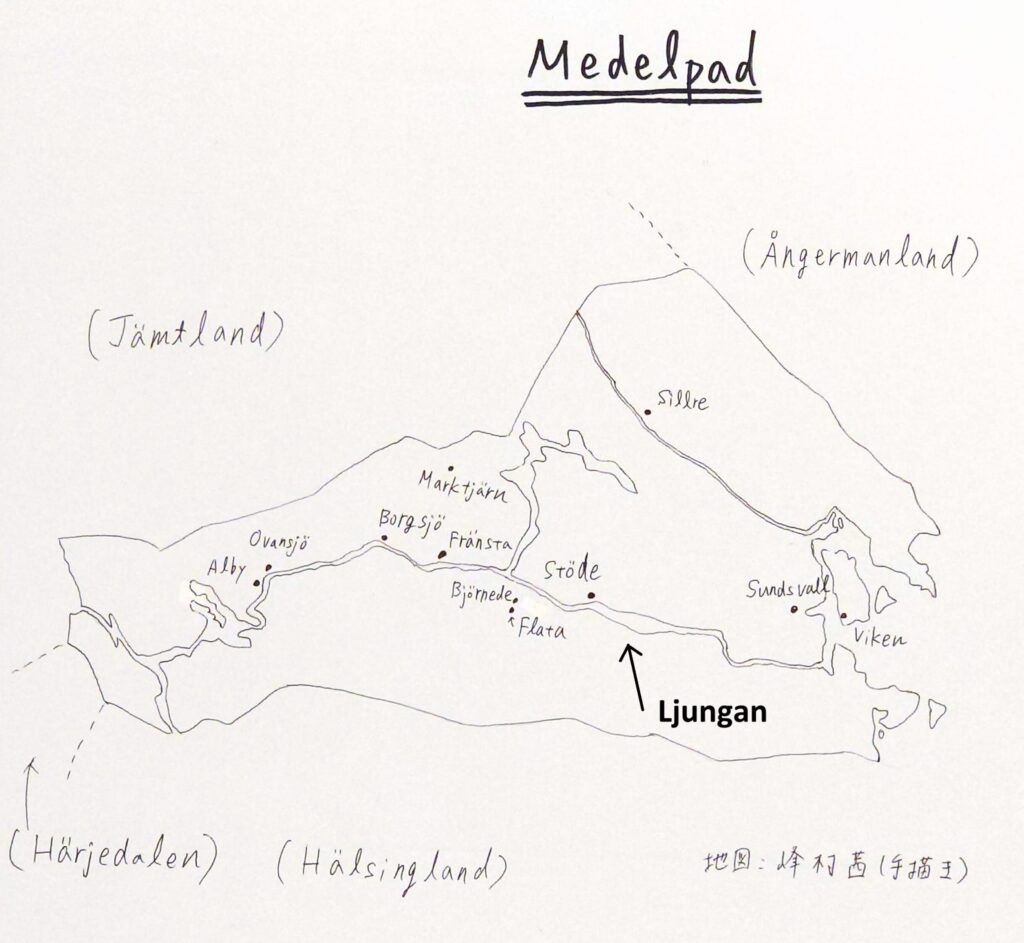 Medelpad
(Ångermanland)
(Jämtland)
Sillre
Marktjärn
Borgsjö
Fränsta
Ovansjö
Alby
Stöde
Björnede
Flata
Sundsvall
Viken
Ljungan
(Härjedalen)
(Hälsingland)
地図: 峰村茜(手描き)